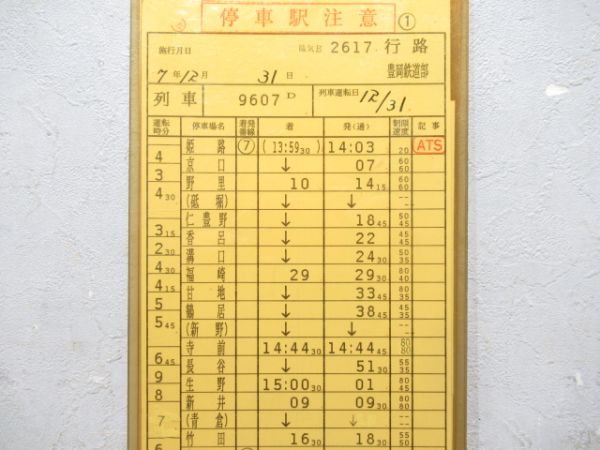 停車駅注意 ①
施行月日
2617 行路
7年12月 31日 豊岡鉄道部
列車 9607D 列車運転日 12/31
運転時分 停車場名 着発番線 着 発(通) 制限速度 記事
姫路 ⑦ (13:59 30) 14:03 20 ATS
4 京口 ↓ 07 60 60
3 野里 10 14 15 60 60
4 30 (砥堀) ↓ ↓ -- --
仁豊野 ↓ 18 45 50 45
3 15 香呂 ↓ 22 45 45
2 30 溝口 ↓ 24 30 50 35
4 30 福崎 29 29 30 80 40
4 15 甘地 ↓ 33 45 80 35
5 鶴居 ↓ 38 45 45 35
5 45 (新野) ↓ ↓ -- --
寺前 14:44 30 14:44 45 80 80
6 45 長谷 ↓ 51 30 55 35
9 生野 15:00 30 01 80 45
8 新井 09 09 30 80 45
7 (青倉) ↓ ↓ -- --
竹田 16 30 18 30 55 50
6